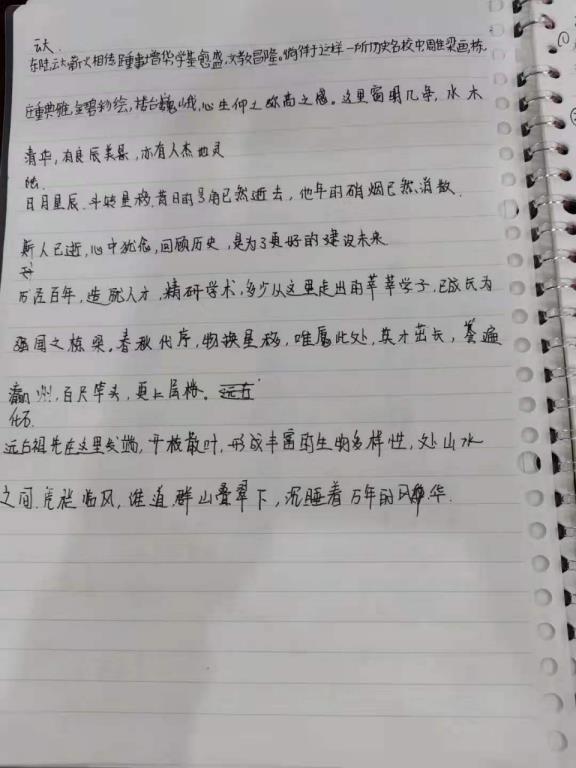 云大
东陆云大薪火相传,踵事增华,学基愈盛,文教昌隆。徜徉于这样一所历史名校中,雕梁画栋,
庄重典雅,金碧彩绘,楼台巍峨,心生仰之弥高之感。这里窗明几净,水木
清华,有良辰美景,亦有人杰地灵
陆
日月星辰.斗转星移,昔日的号角已然逝去,他年的硝烟已然消散.
斯人已逝,心中犹念,回顾历史,是为了更好的建设未来
历经百年,造就人才,精研学术,多少从这里走出的莘莘学子,已成长为
强国之栋梁。春秋代序,物换星移,唯愿此处,英才茁长,誉遍
瀛洲,百尺竿头,更上层楼。
化石
远古祖先在这里发端,开枝散叶,形成丰富的生物多样性,处山水
之间.凭栏临风,谁道群山叠翠下,沉睡着万年的风华.